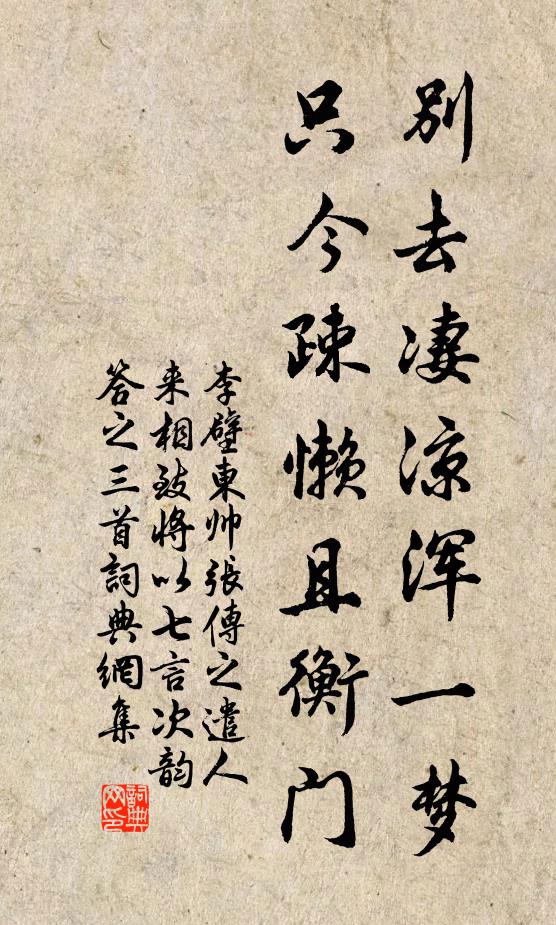 别去凄凉浑一梦
只今疎懒且衡门
李壁東帅張傅之遣人
来相致将以七言次韵
答之三首詞典網集
詞典
网印